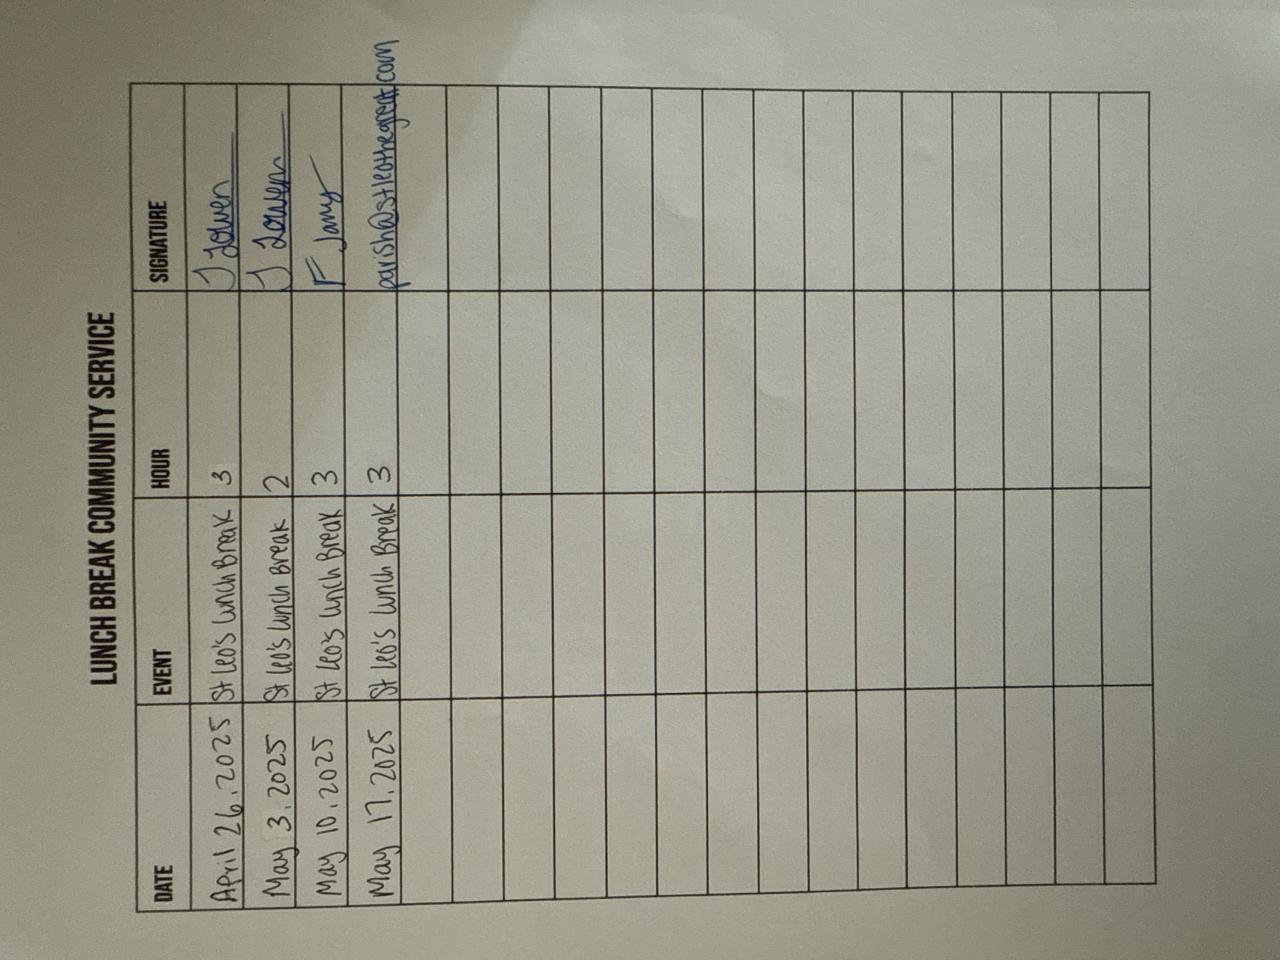 LUNCH BREAK COMMUNITY SERVICE
DATE EVENT HOUR SIGNATURE
April 26.2025 St Leo's Lunch Break 3 J Lowen
May 3.2025 St Leo's Lunch Break 2 J Lowen
May 10.2025 St Leo's Lunch Break 3 F
May 17.2025 St Leo's Lunch Break 3 parish@stleothegreat.com